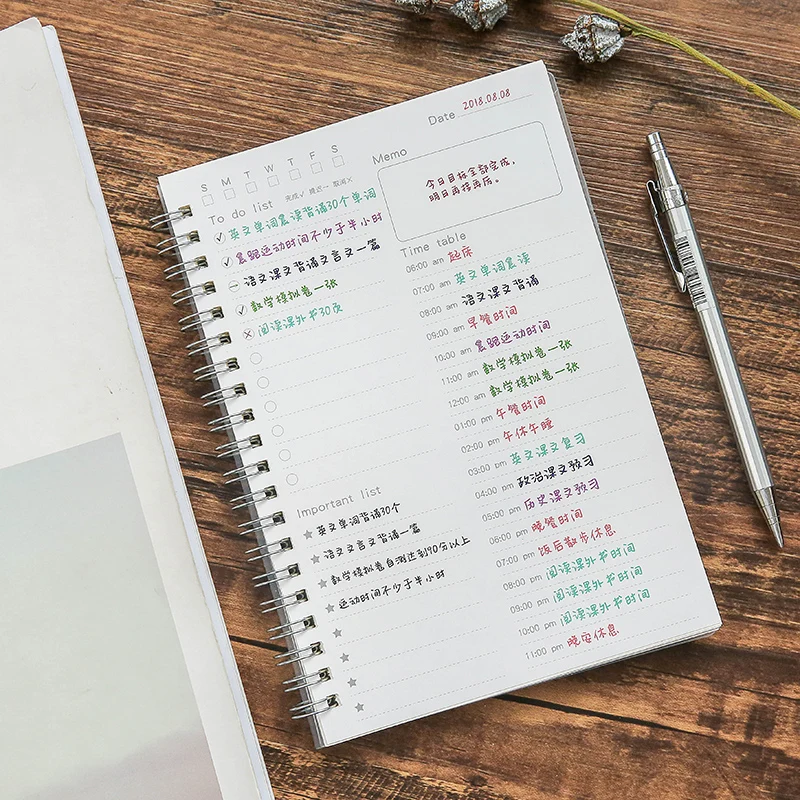 Date 2018.08.08
S M T W T F S
完成✓ 推迟— 取消×
Memo
今日目标全部完成,
明日再接再厉。
To do list
英文单词晨读背诵30个单词
晨跑运动时间不少于半小时
语文课文背诵文言文一篇
数学模拟卷一张
阅读课外书30页
Important list
英文单词背诵30个
语文文言文背诵一篇
数学模拟卷自测达到90分以上
运动时间不少于半小时
Time table
06:00 am 起床
07:00 am 英文单词晨读
08:00 am 语文课文背诵
09:00 am 早餐时间
10:00 am 晨跑运动时间
11:00 am 数学模拟卷一张
12:00 am 数学模拟卷一张
01:00 pm 午餐时间
02:00 pm 午休午睡
03:00 pm 英文课文复习
04:00 pm 政治课文预习
05:00 pm 历史课文预习
06:00 pm 晚餐时间
07:00 pm 饭后散步休息
08:00 pm 阅读课外书时间
09:00 pm 阅读课外书时间
10:00 pm 阅读课外书时间
11:00 pm 晚安休息